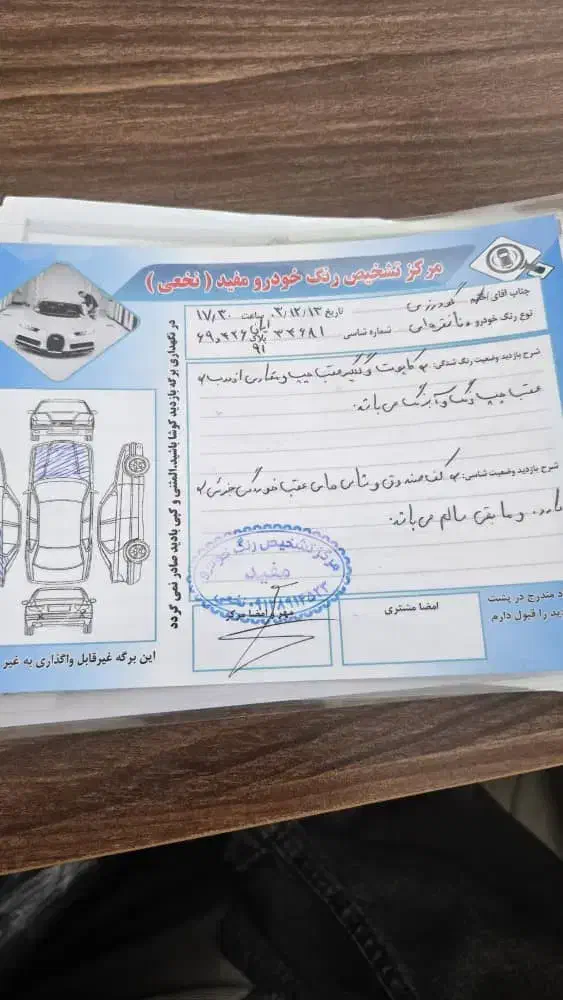 مرکز تشخیص رنگ خودرو مفید ( نخعی )
جناب آقای/خانم گودرزی تاریخ ۰۳/۱۲/۱۳ ساعت ۱۷/۳۰
نوع رنگ خودرو شماره شاسی ۳۴۶۸۱ پلاک ایران ۹۱
شرح بازدید وضعیت رنگ شدگی: کاپوت و گلگیر عقب چپ و مقداری از درب
عقب چپ رنگ و آبرنگ می باشد.
شرح بازدید وضعیت شاسی: کف صندوق و شاسی های عقب خوردگی جزئی
دارد. و مابقی سالم می باشد.
در نگهداری برگه بازدید کوشا باشید.المثنی و کپی بادید صادر نمی گردد
مرکز تشخیص رنگ خودرو
مفید
نخعی
مهر و امضا مرکز
امضا مشتری
د مندرج در پشت
دید را قبول دارم
این برگه غیرقابل واگذاری به غیر